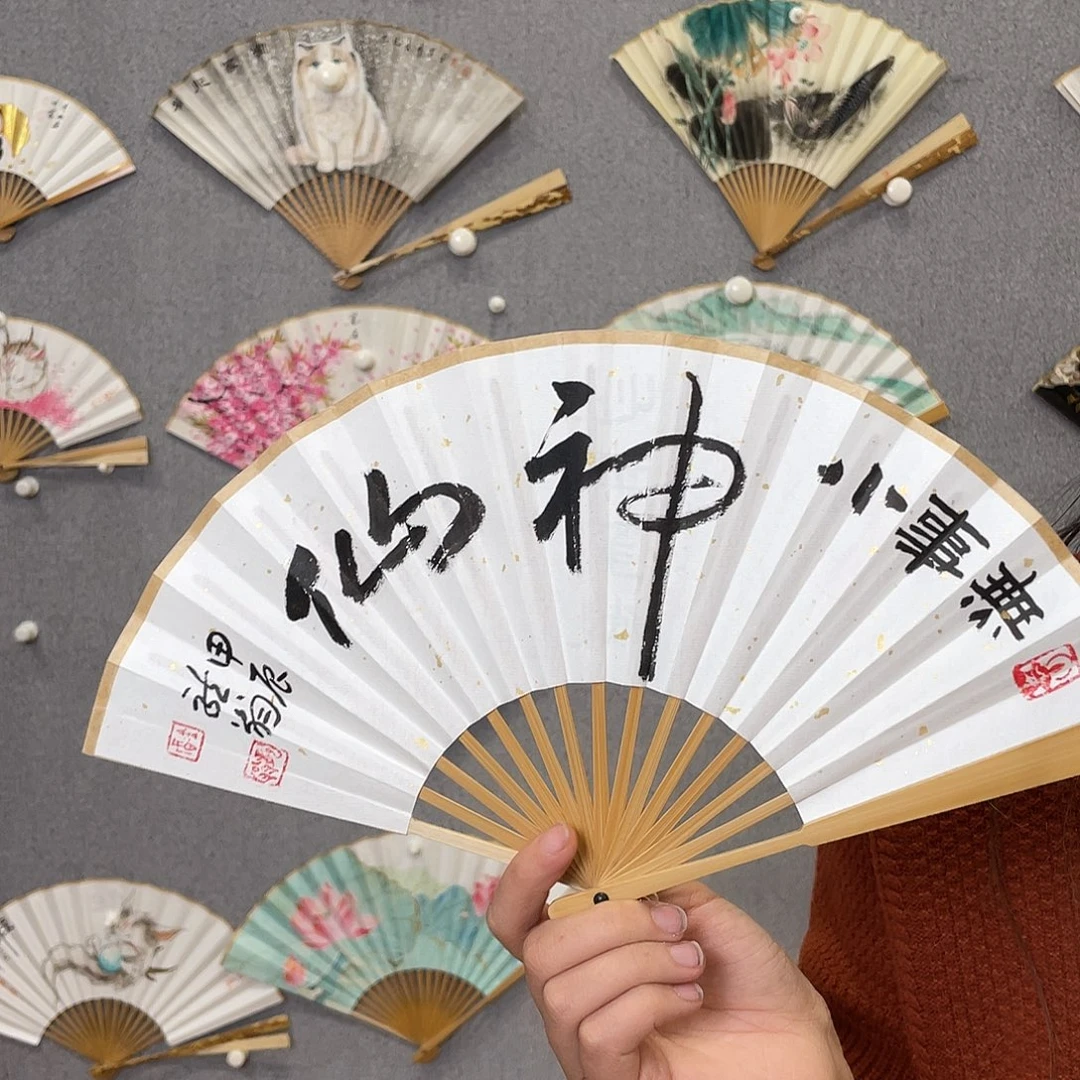 無事小神仙
甲辰